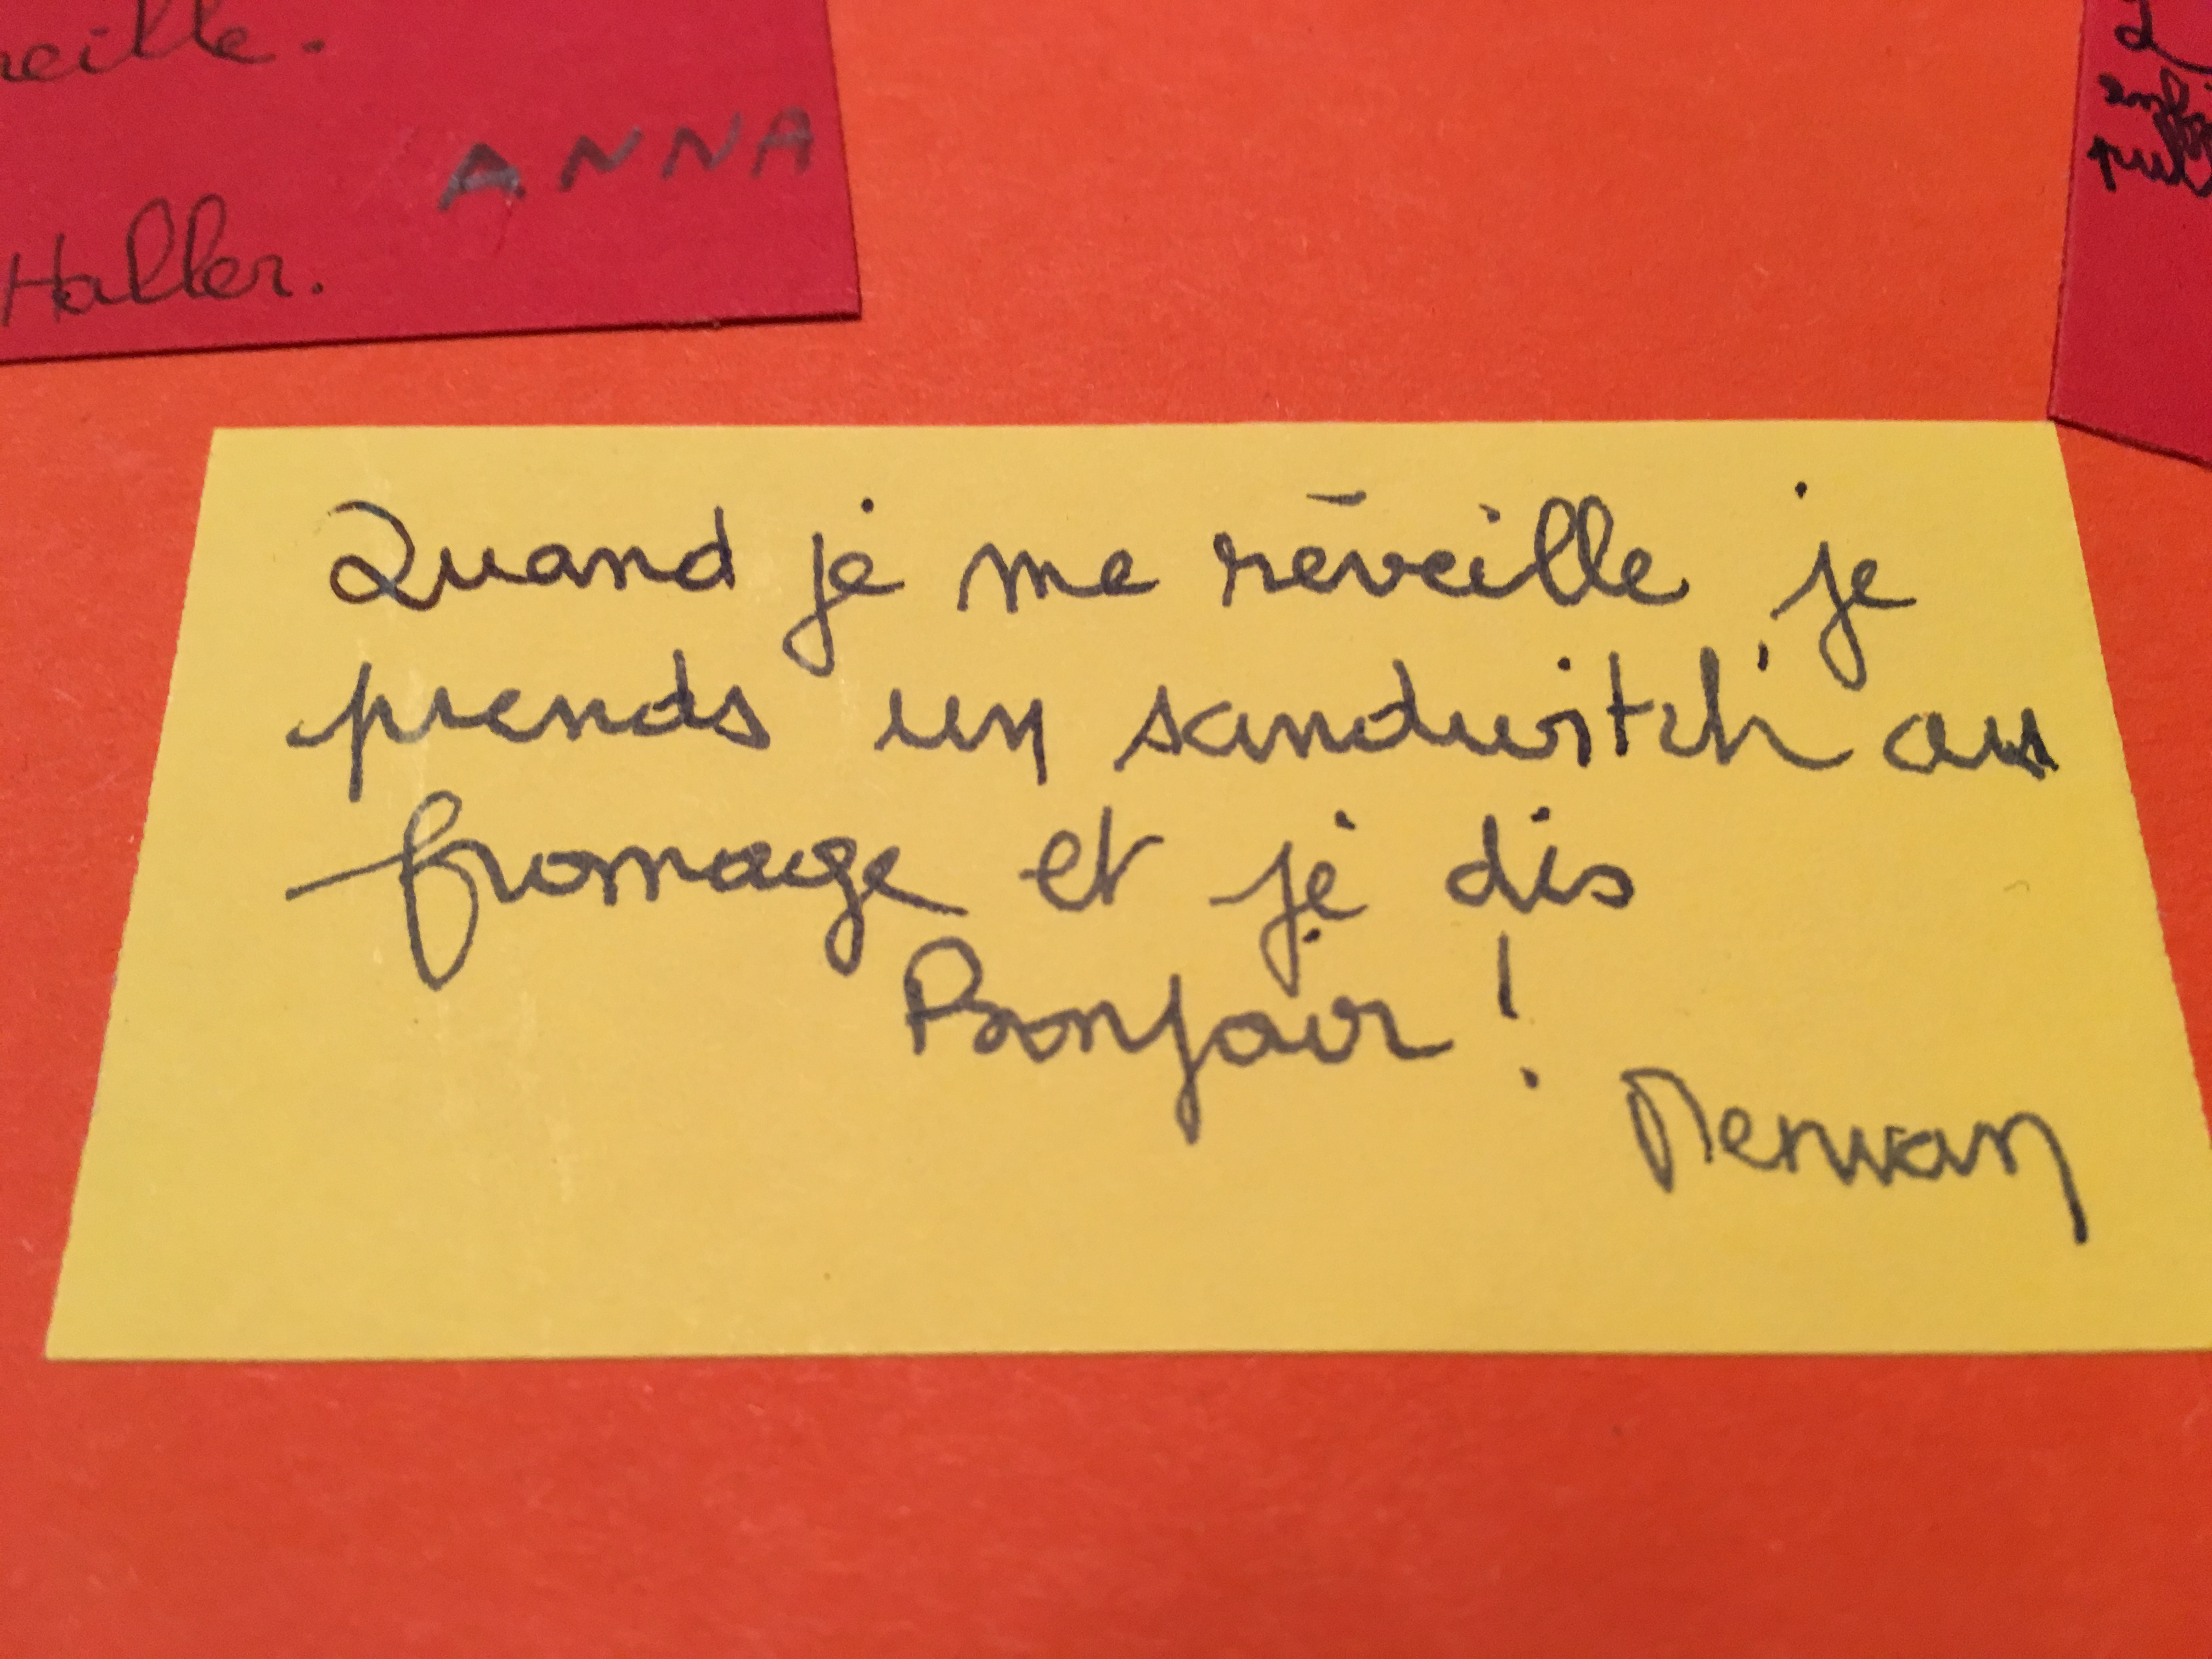 ANNA
Haller.
Quand je me réveille je
prends un sandwitch au
fromage et je dis
Bonjour !
Merwan